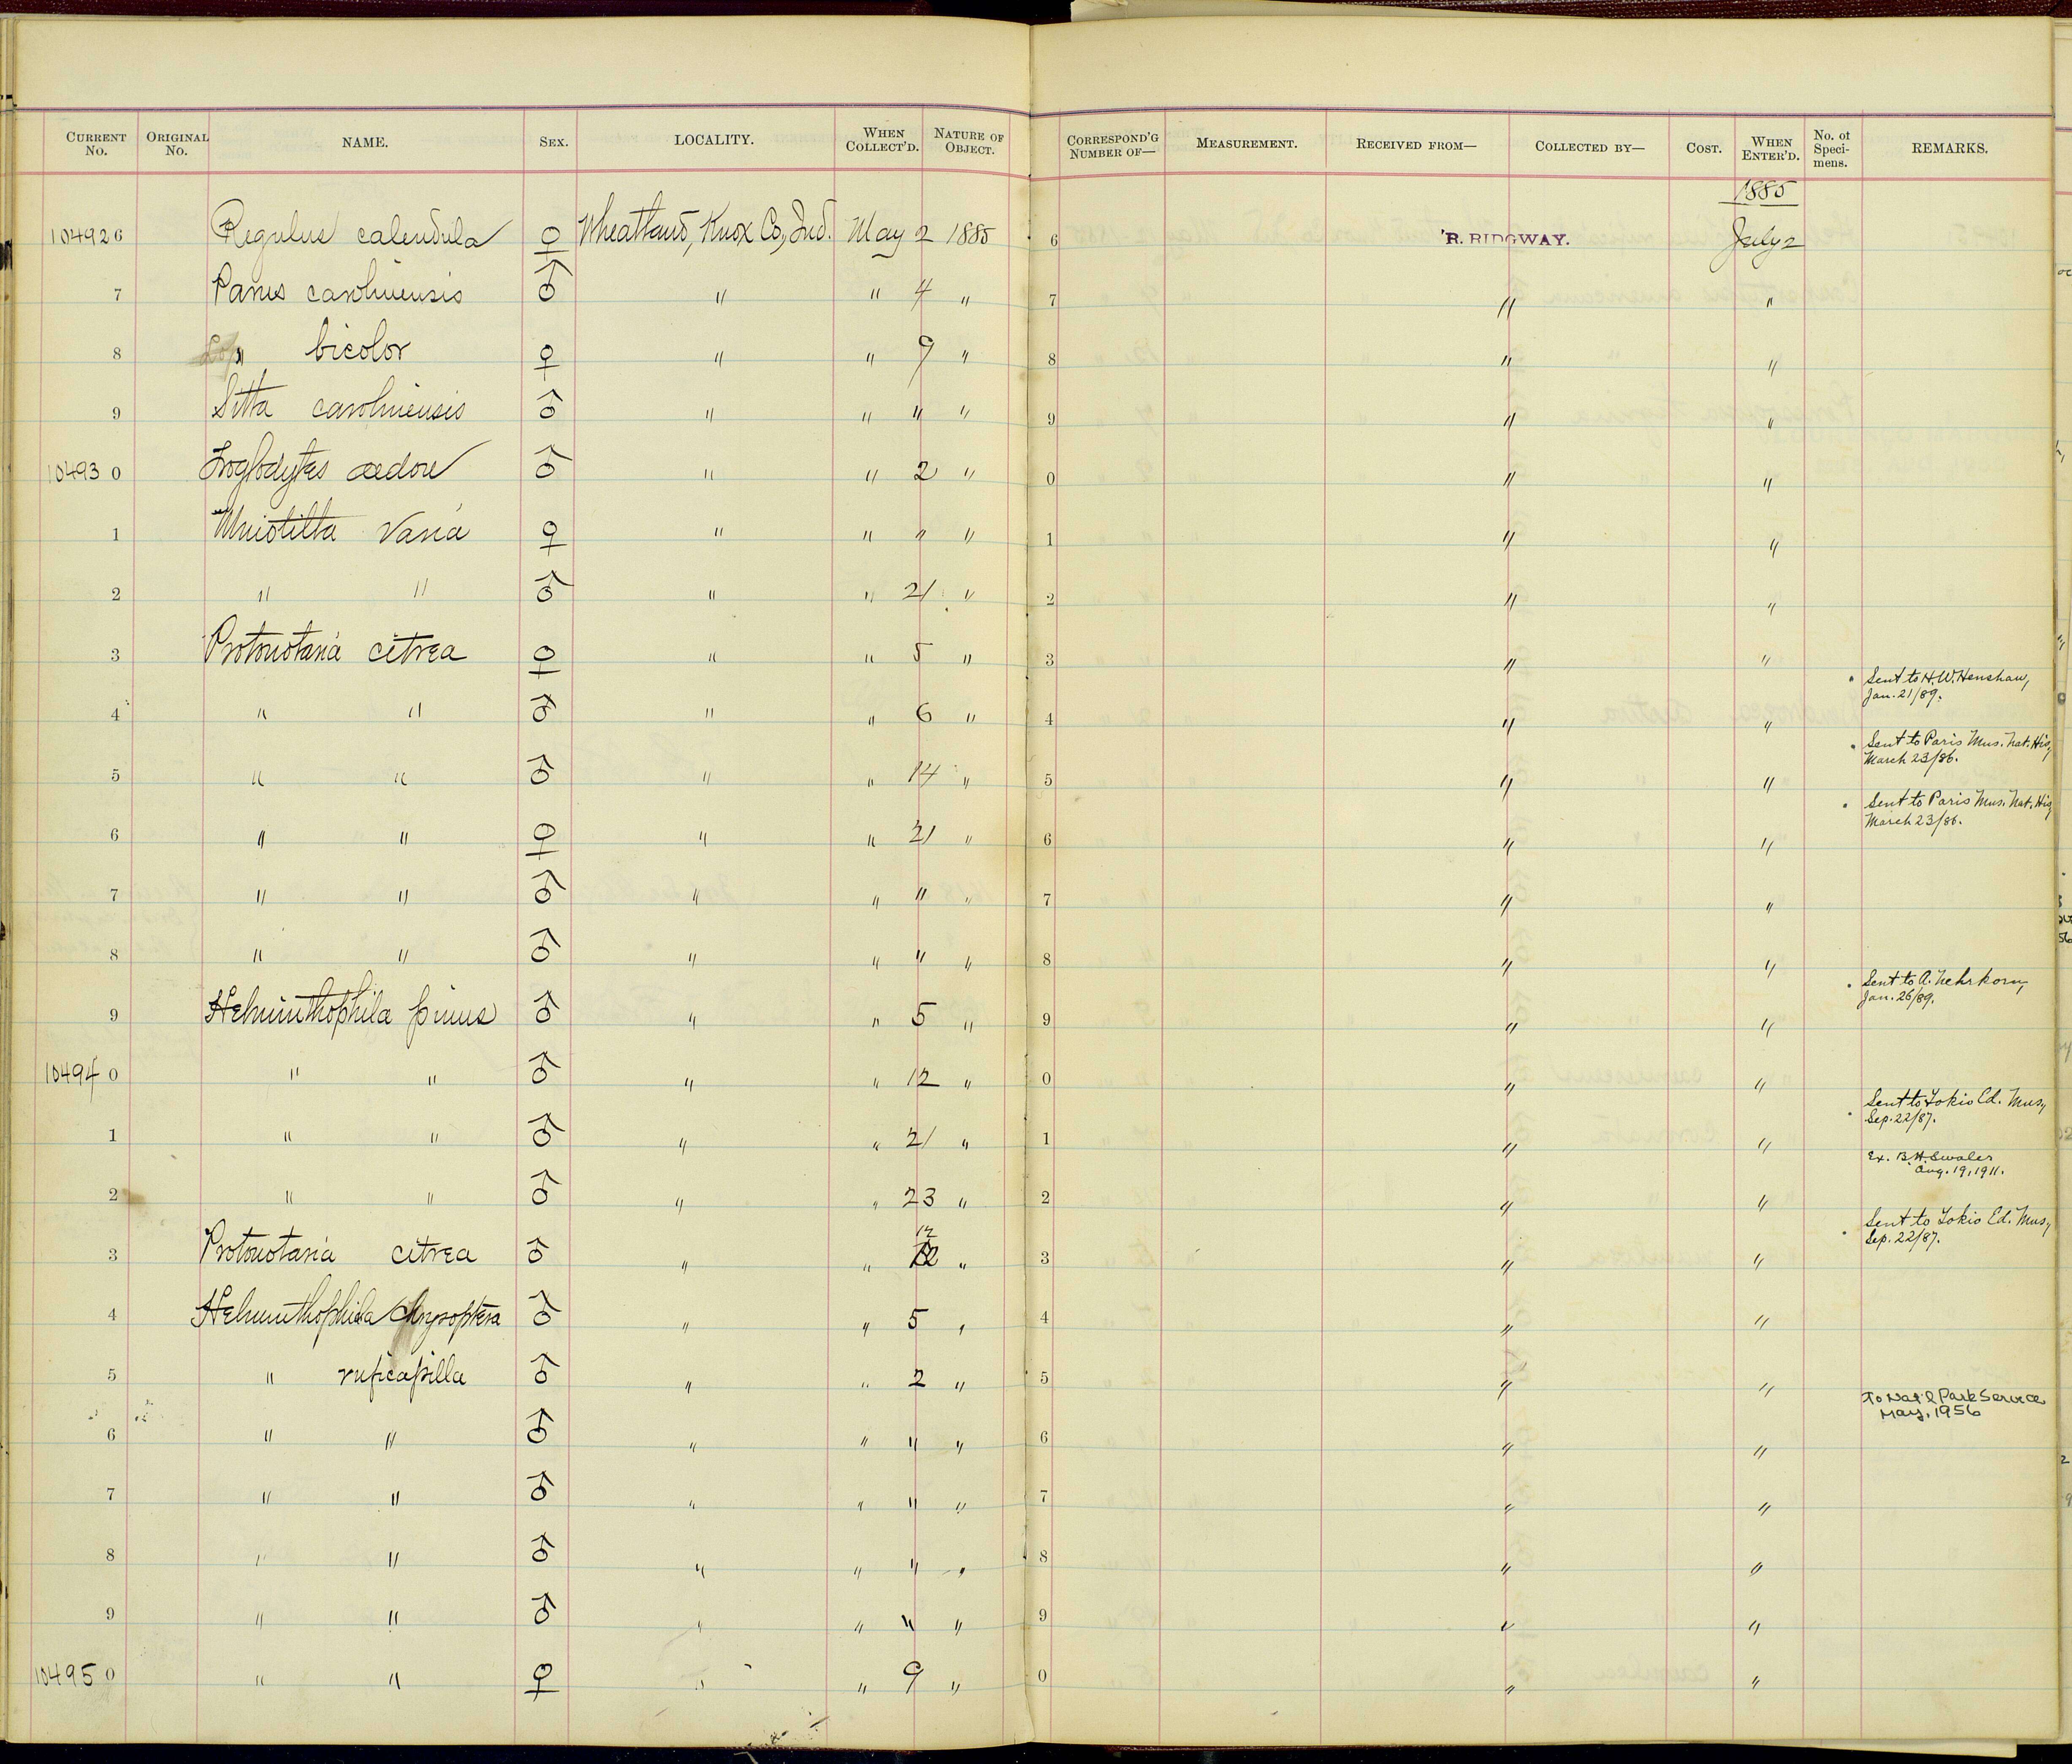 CURRENT No. ORIGINAL No. NAME. SEX. LOCALITY. WHEN COLLECT'D. NATURE OF OBJECT. CORRESPOND'G NUMBER OF— MEASUREMENT. RECEIVED FROM— COLLECTED BY— COST. WHEN ENTER'D. No. of Specimens. REMARKS.
1885
104926 Regulus calendula ♀ Wheatland, Knox Co., Ind. May 2 1885 6 R. RIDGWAY. July 2
7 Parus carolinensis ♂ " " 4 " 7 " "
8 " bicolor ♀ " " 9 " 8 " "
9 Sitta carolinensis ♂ " " " " 9 " "
104930 Troglodytes aedon ♂ " " 2 " 0 " "
1 Mniotilta varia ♀ " " " " 1 " "
2 " " ♂ " " 21 " 2 " "
3 Protonotaria citrea ♀ " " 5 " 3 " "
Sent to H. W. Henshaw,
Jan. 21/89.
4 " " ♂ " " 6 " 4 " "
Sent to Paris Mus. Nat. His,
March 23/86.
5 " " ♂ " " 14 " 5 " "
Sent to Paris Mus. Nat. His,
March 23/86.
6 " " ♀ " " 21 " 6 " "
7 " " ♂ " " " " 7 " "
8 " " ♂ " " " " 8 " "
Sent to A. Nehrkorn,
Jan. 26/89.
9 Helminthophila pinus ♂ " " 5 " 9 " "
104940 " " ♂ " " 12 " 0 " "
Sent to Tokio Ed. Mus,
Sep. 22/87.
1 " " ♂ " " 21 " 1 " "
Ex. B.H. Swales
Aug. 19, 1911.
2 " " ♂ " " 23 " 2 " "
Sent to Tokio Ed. Mus,
Sep. 22/87.
12
3 Protonotaria citrea ♂ " " " 3 " "
4 Helminthophila chrysoptera ♂ " " 5 " 4 " "
5 " ruficapilla ♂ " " 2 " 5 " "
To Nat'l Park Service
May, 1956
6 " " ♂ " " " " 6 " "
7 " " ♂ " " " " 7 " "
8 " " ♂ " " " " 8 " "
9 " " ♂ " " " " 9 " "
104950 " " ♀ " " 9 " 0 " "